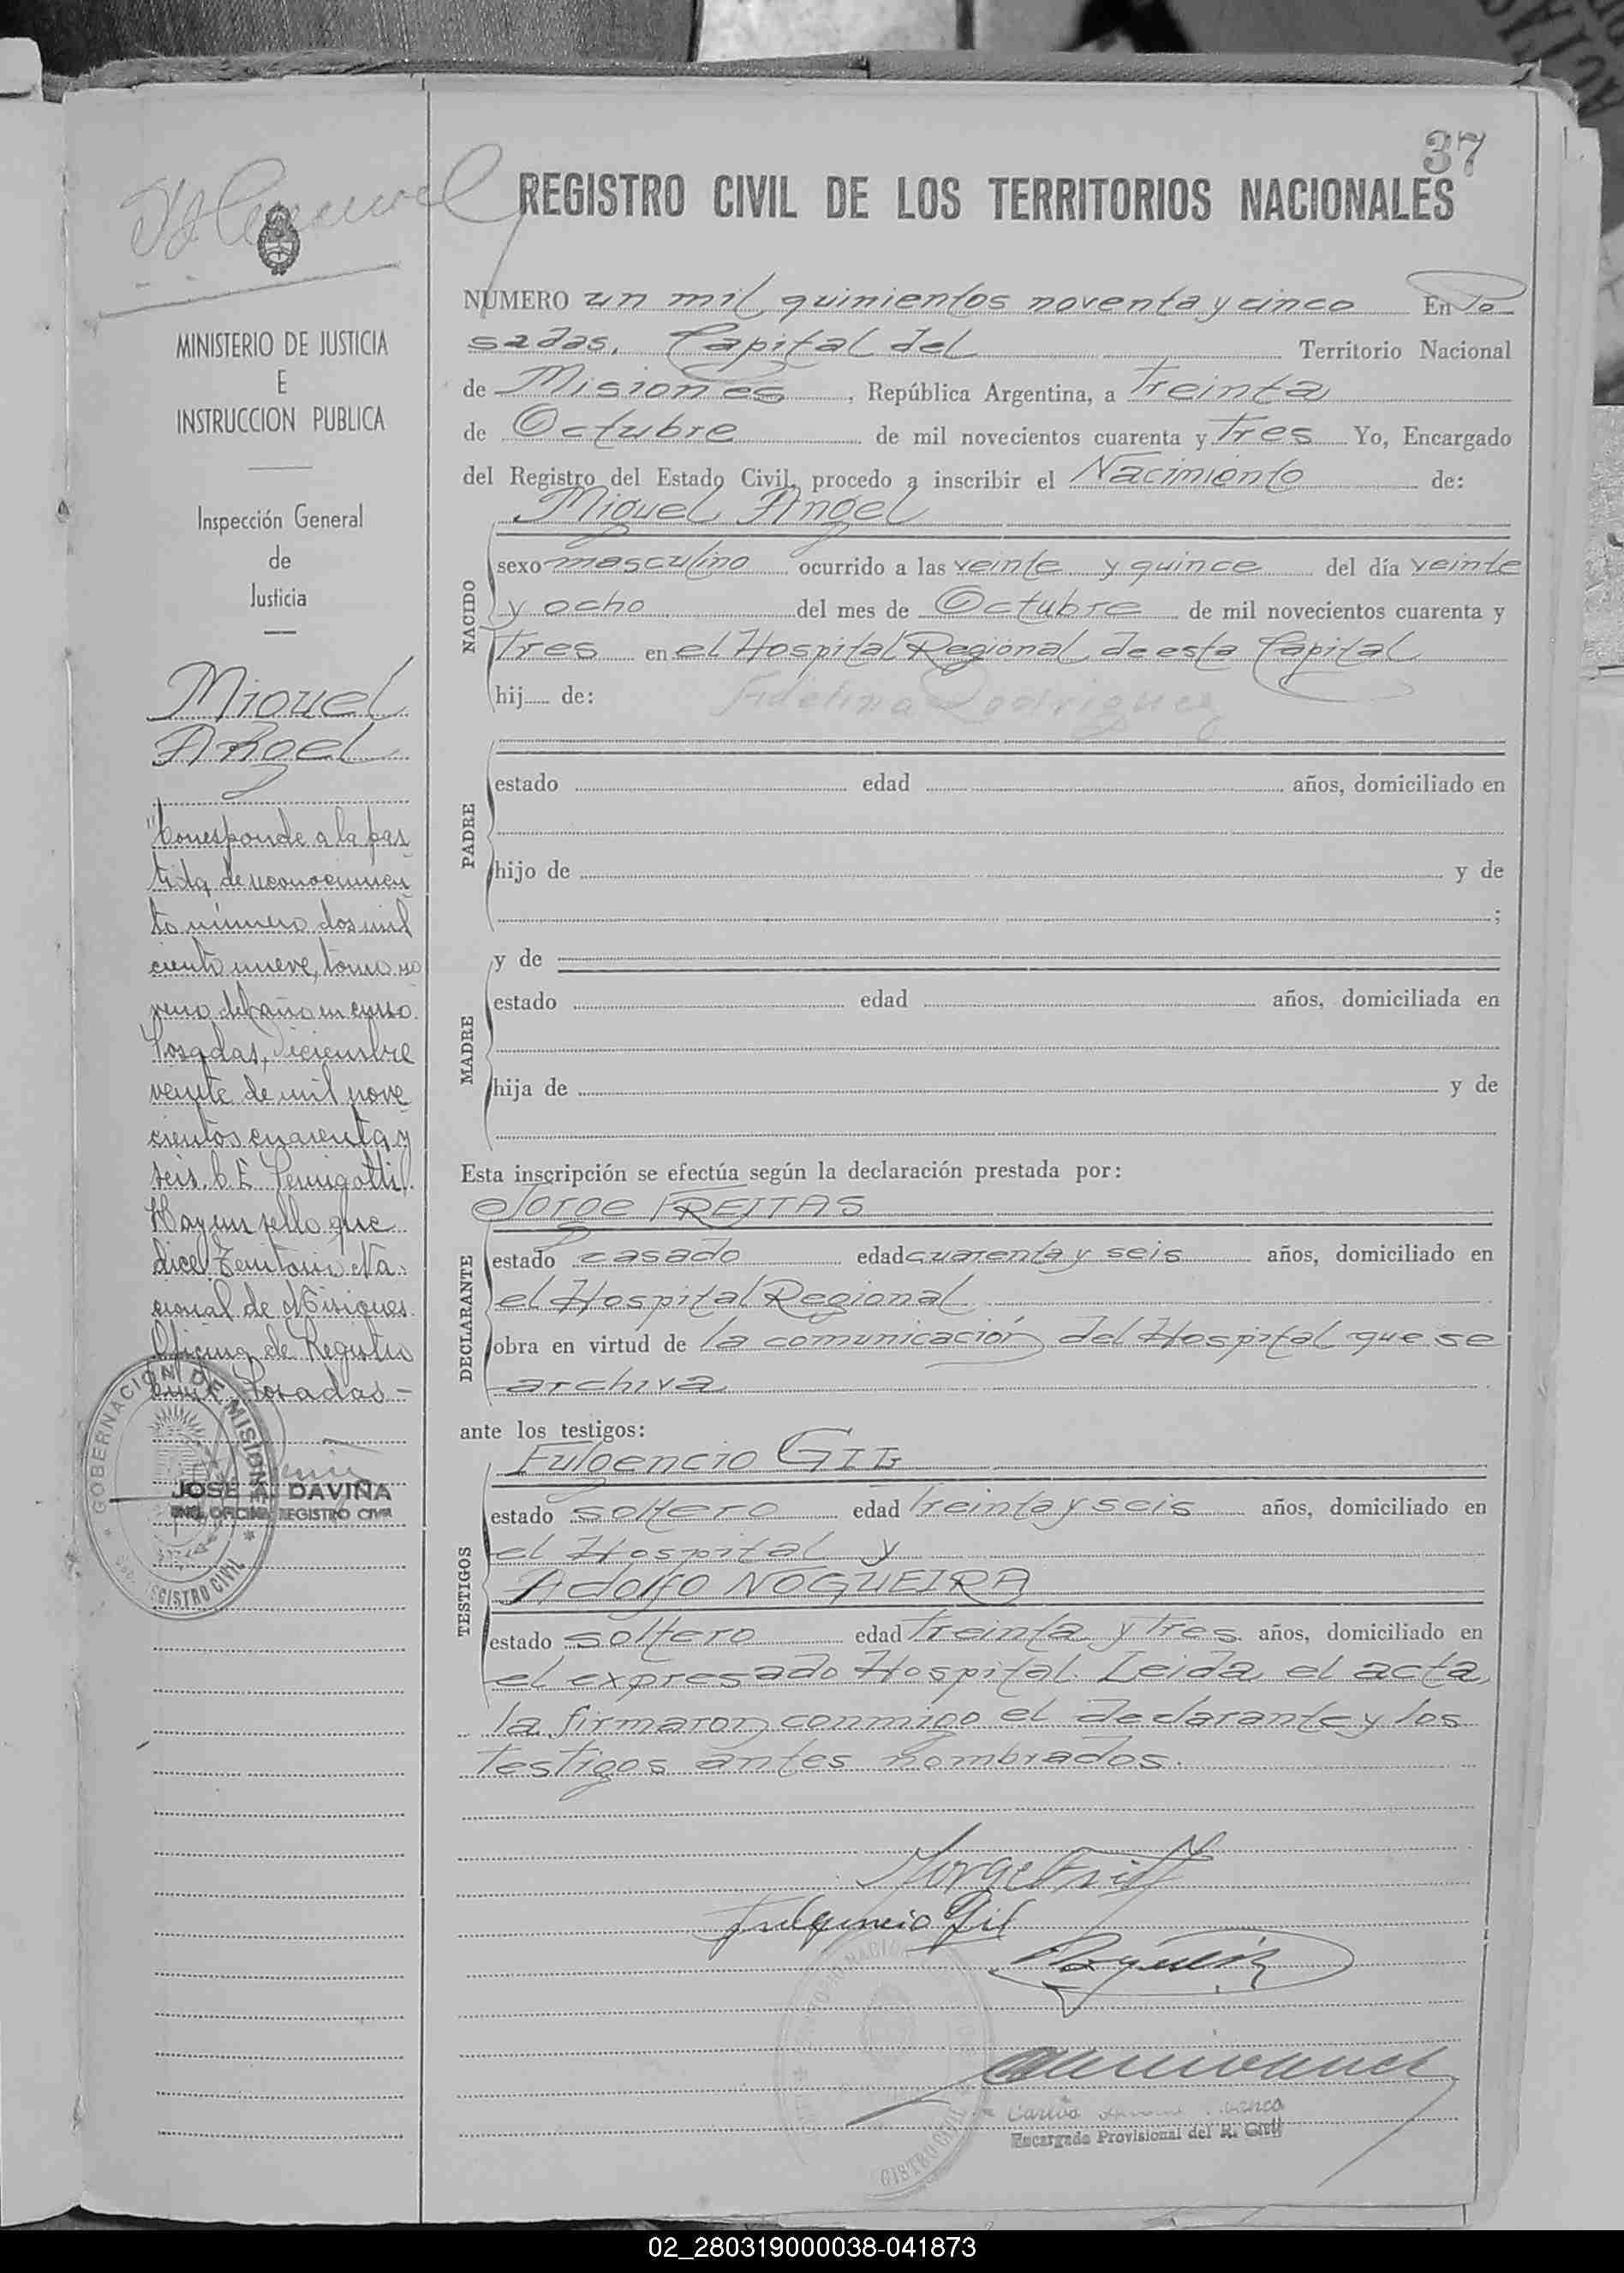 37
REGISTRO CIVIL DE LOS TERRITORIOS NACIONALES
MINISTERIO DE JUSTICIA
E
INSTRUCCION PUBLICA
Inspección General
de
Justicia
Miguel
Angel
"Corresponde a la par
tida de reconocimien
to número dos mil
ciento nueve, tomo no
veno del año en curso.
Posadas, Diciembre
veinte de mil nove
cientos cuarenta y
seis. C. E.
Hay un sello que
dice Territorio Na
cional de Misiones.
Oficina de Registro
Civil. Posadas -
GOBERNACION DE MISIONES
REGISTRO CIVIL
JOSE A. DAVIÑA
ENC. OFICINA REGISTRO CIVIL
NUMERO un mil quinientos noventa y cinco En Po
sadas, Capital del Territorio Nacional
de Misiones, República Argentina, a Treinta
de Octubre de mil novecientos cuarenta y Tres Yo, Encargado
del Registro del Estado Civil, procedo a inscribir el Nacimiento de:
Miguel Angel
NACIDO
sexo masculino ocurrido a las veinte y quince del día veinte
y ocho del mes de Octubre de mil novecientos cuarenta y
Tres en el Hospital Regional de esta Capital
hij de: Fidelina Rodriguez
PADRE
estado edad años, domiciliado en
hijo de y de
;
y de
MADRE
estado edad años, domiciliada en
hija de y de
Esta inscripción se efectúa según la declaración prestada por:
Jorge FREITAS
DECLARANTE
estado casado edad cuarenta y seis años, domiciliado en
el Hospital Regional
obra en virtud de la comunicación del Hospital que se
archiva
ante los testigos:
Fulgencio GIL
TESTIGOS
estado soltero edad treinta y seis años, domiciliado en
el Hospital y
Adolfo NOGUEIRA
estado soltero edad treinta y tres años, domiciliado en
el expresado Hospital. Leida el acta,
la firmaron conmigo el declarante y los
testigos antes nombrados.
Fulgencio Gil
REGISTRO CIVIL
Carlos
Encargado Provisional del R. Civil
02_280319000038-041873